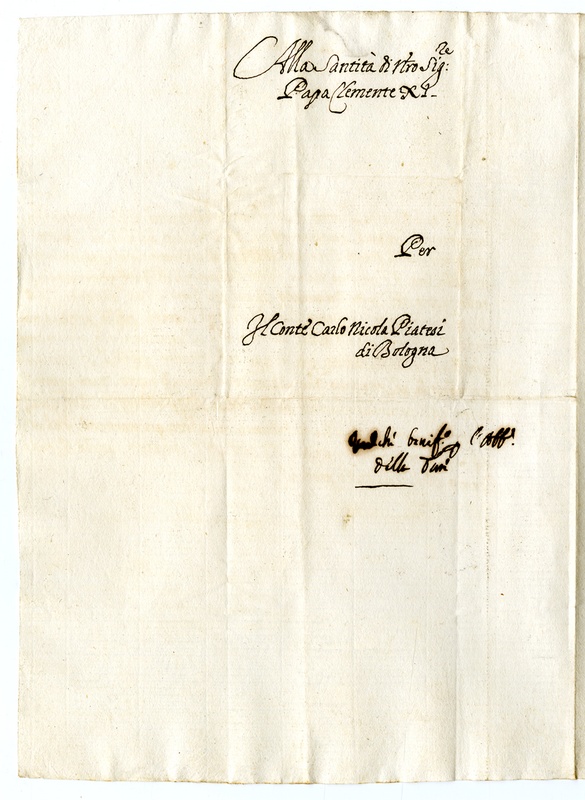 Alla Santità di Nro Sig:re
Papa Clemente XI-
Per
Il Conte Carlo Nicola Piatesi
di Bologna
l'Abb: